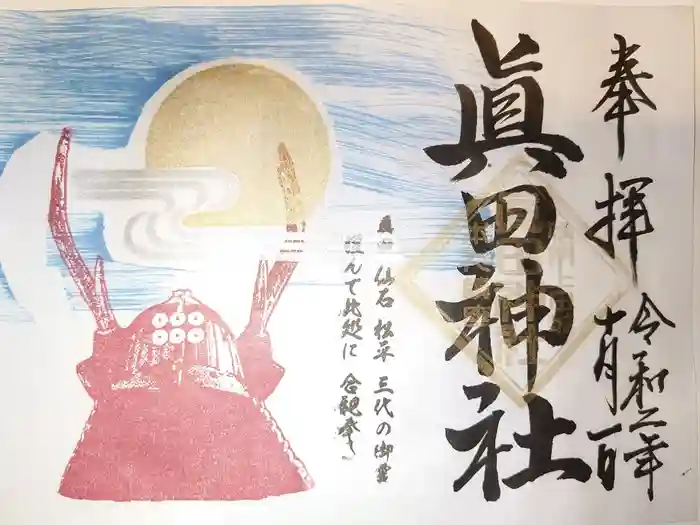 奉拝
令和二年
十月一日
眞田神社
真田 仙石 松平 三代の御霊
謹んで此処に 合祀奉る